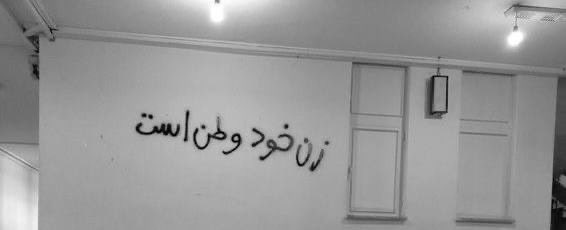 زن خود وطن است